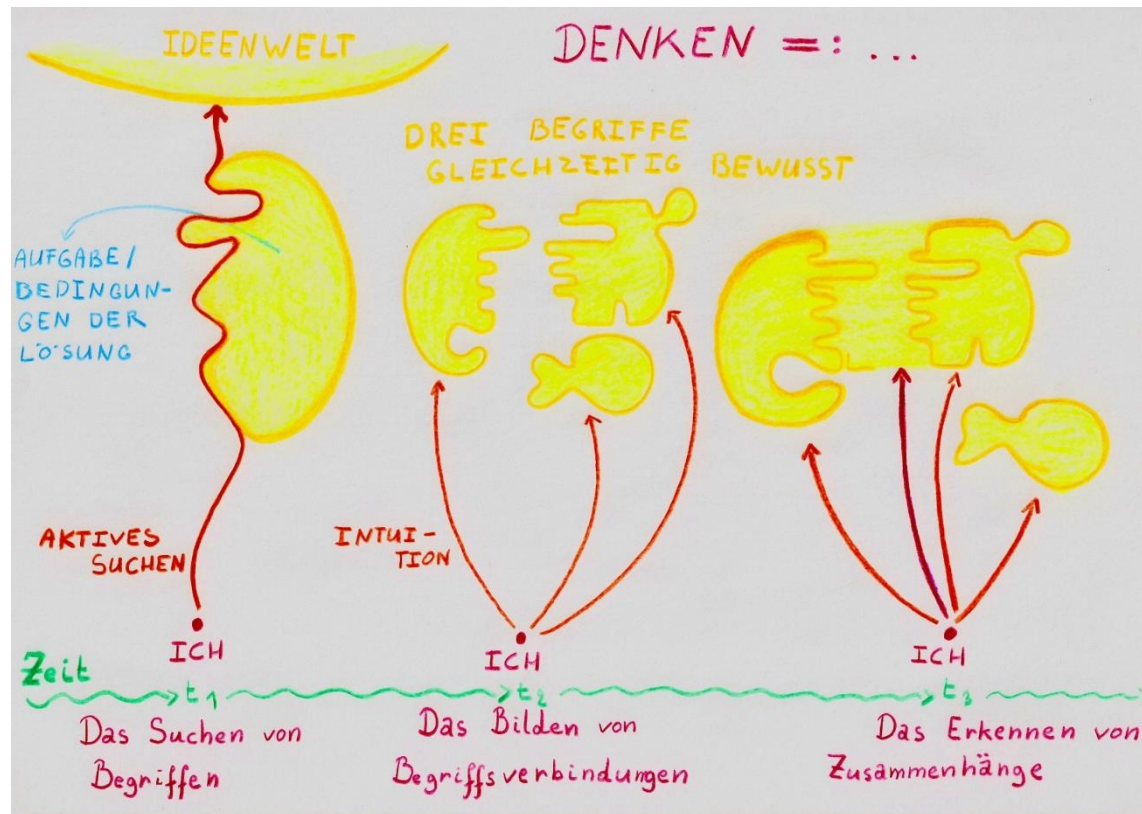 IDEENWELT
DENKEN =: ...
DREI BEGRIFFE
GLEICHZEITIG BEWUSST
AUFGABE/
BEDINGUN-
GEN DER
LÖSUNG
AKTIVES
SUCHEN
INTUI-
TION
ICH
ICH
ICH
Zeit
t1
t2
t3
Das Suchen von
Begriffen
Das Bilden von
Begriffsverbindungen
Das Erkennen von
Zusammenhänge